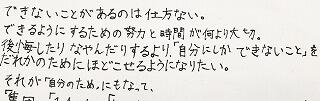 できないことがあるのは仕方ない。
できるようにするための努力と時間が何より大切。
後悔したりなやんだりするより、「自分にしかできないこと」を
だれかのためにほどこせるようになりたい。
それが「自分のため」にもなって、